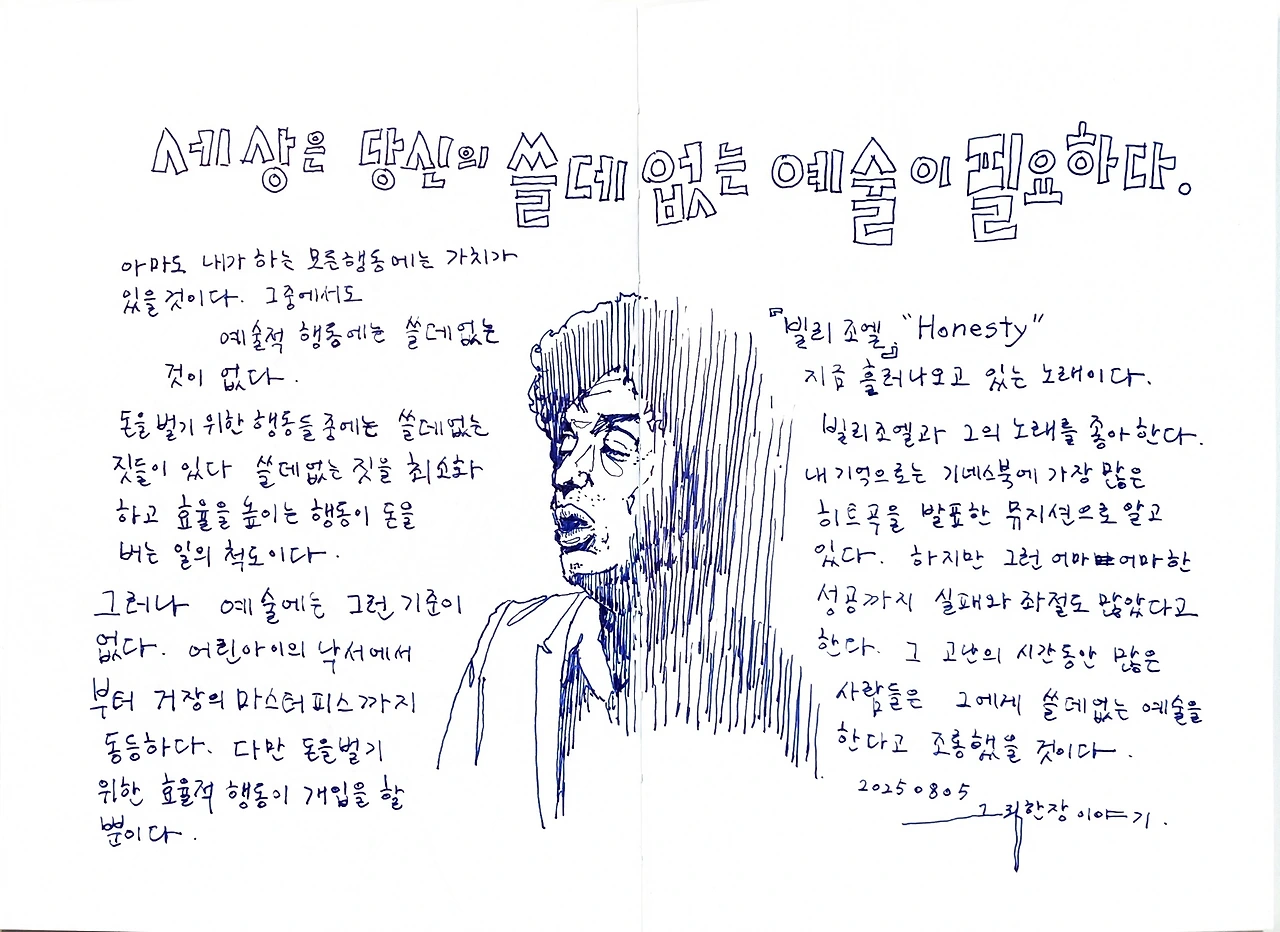 세상은 당신의 쓸데없는 예술이 필요하다.
아마도 내가 하는 모든행동에는 가치가
있을것이다. 그중에서도
예술적 행동에는 쓸데없는
것이 없다.
돈을벌기 위한행동들 중에는 쓸데없는
짓들이 있다 쓸데없는 짓을 최소화
하고 효율을 높이는 행동이 돈을
버는 일의 척도이다.
그러나 예술에는 그런 기준이
없다. 어린아이의 낙서에서
부터 거장의 마스터피스까지
동등하다. 다만 돈을벌기
위한 효율적 행동이 개입을 할
뿐이다.
『빌리 조엘』 "Honesty"
지금 흘러나오고 있는 노래이다.
빌리조엘과 그의 노래를 좋아한다.
내 기억으로는 기네스북에 가장 많은
히트곡을 발표한 뮤지션으로 알고
있다. 하지만 그런 어마어마한
성공까지 실패와 좌절도 많았다고
한다. 그 고난의 시간동안 많은
사람들은 그에게 쓸데없는 예술을
한다고 조롱했을 것이다.
20250805
그림한장이야기.